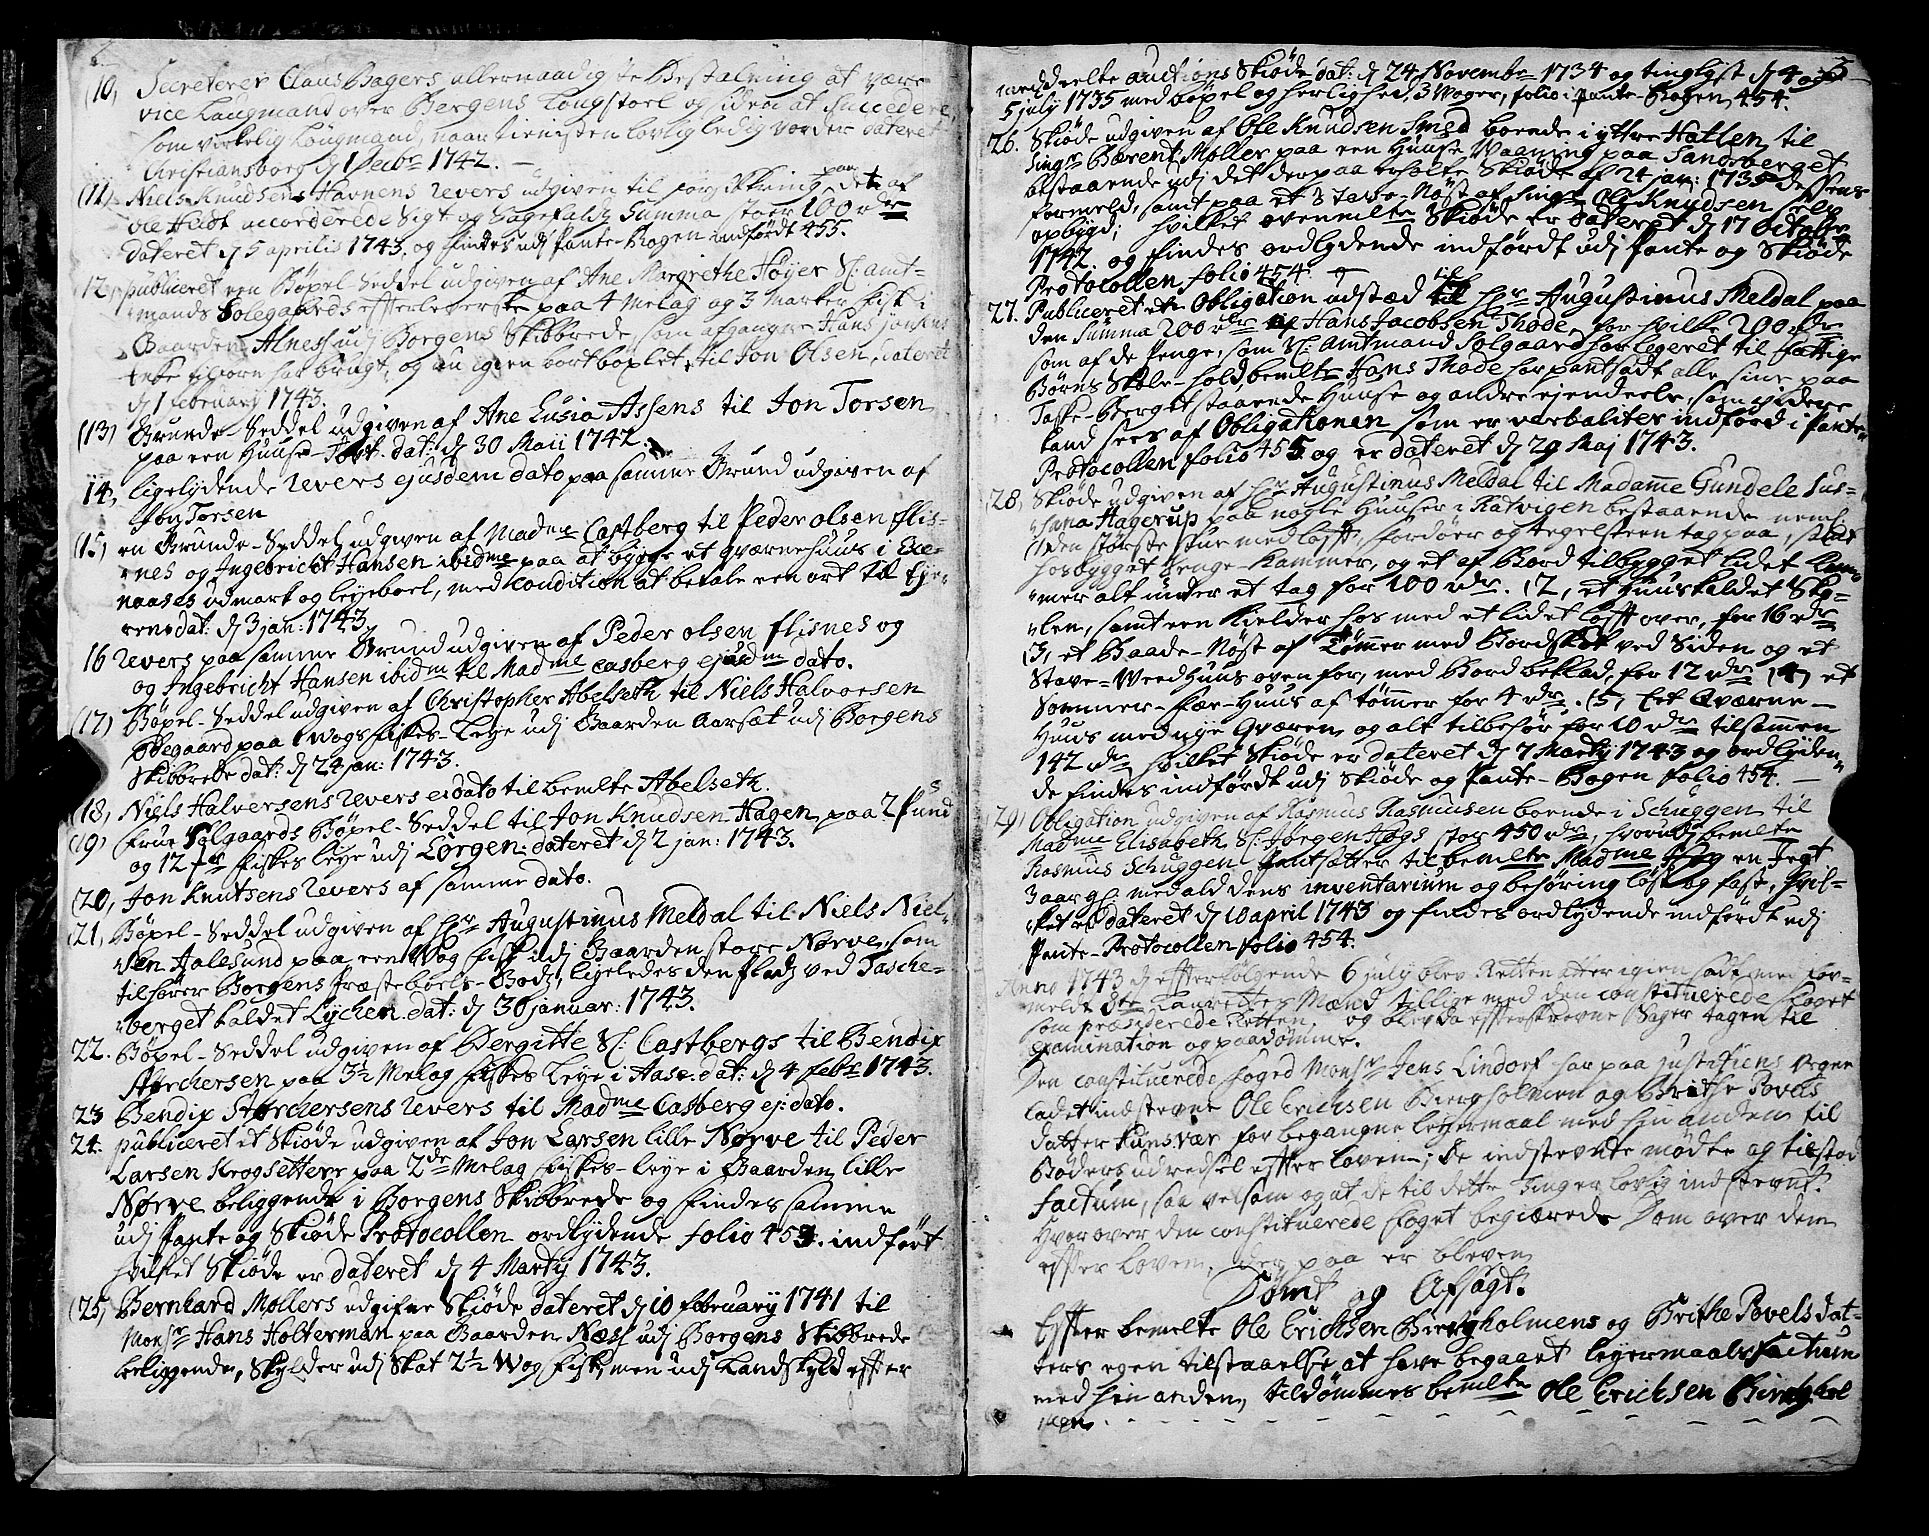 (10, Secreterer Claus Hagers allernaadigste Bestalning at være
vice Laugmand over Bergens Laugstoel og siden at Succedere,
som virkelig Laugmand, naar tienisten lovlig ledig vorder dateret
Christiansborg d 1 Decbr 1742. —
(11) Niels Knudsens Havnens Revers udgiven til sorgskring paa det af
Ole Heidt accorderede Sigt og Sagefalds Summa stoer 100 rdr
dateret d 5 aprilis 1743. og findes udj Pante-Bogen indførdt 455.
12, publiceret een Bøxel-Seddel udgiven af Ane Margrethe Høyer Sl: amt-
mands Solegaards efterleverske paa 4 Melag og 3 Marker fisk i
Gaarden Alness udj Borgens Skibbrede som afgangne Hans Jonsens
Enke tilforn har brugt, og nu igien bortboxlet til Jon Olsen, dateret
d 1 february 1743.
(13) Grunde-Seddel udgiven af Ane Lusia Assens til Jon Torsen
paa een Huuse-Toft. dat: d 30 Maii 1742.
14, ligelydende Revers ejusdem dato paa samme Grund udgiven af
Jon Torsen
(15) en Grunde-Seddel udgiven af Madme Castberg til Peder olsen flis-
nes og Ingebricht Hansen ibidme paa at bygge et qværnehuus i Exe-
naases udmark og leyeboel, med Condition at betale een ort til Eje-
eren. dat: d 3 jan: 1743.
16 Revers paa samme Grund udgiven af Peder olsen flisnes og
og Ingebricht Hansen ibidm til Madme Casberg ejusdm dato.
(17) Bøxel-Seddel udgiven af Christopher Abelseth til Niels Halvorsen
Ødegaard paa 1 Wogs fiskes-Leye udj Gaarden Aarsæt udj Borgens
Skibbrede dat: d 24 jan: 1743.
(18, Niels Halversens Revers ei: dato til bemelte Abelseth.
(19) frue Solgaards Bøxel-Seddel til Jon Knudsen Hagen paa 2 Punds
og 12 fiskes leye udj Lorgen: dateret d 2 jan: 1743.
(20, Jon Knutsens Revers af samme dato.
(21, Bøxel-Seddel udgiven af Hr Augustinus Meldal til Niels Niel-
sen Aalesund paa een Wog fisk udj Gaarden store Nørve, som
tilhører Borgens Præsteboels-Bod, ligeledes den Plads ved Tasche-
berget kaldet Lychen. dat: d 30 januar: 1743.
22. Bøxel-Seddel udgiven af Bergitte Sl: Castbergs til Bendix
Storchersen paa 3½ Melag fiskes Leye i Aase. dat: d 4 febr 1743.
23 Bendix Storchersens Revers til Madme Casberg ej: dato.
24. publiceret et Skiøde udgiven af Jon Larsen lille Nørve til Peder
Larsen Krogsetter paa 2de Melag fiskes-leye i Gaarden lille
Nørve beliggende i Borgens Skibbrede og findes samme
udj Pante og Skiøde Protocollen ordlydende folio 453. indført
hvilket Skiøde er dateret d 4 Martij 1743.
(25, Bernhard Mollers udgifne Skiøde dateret d 10 february 1741 til
Monsr Hans Holterman paa Gaarden Næss udj Borgens Skibbrede
beliggende, Skylder udj Skat 2½ Wog fisk, men udj Landskyld efter
5
meddeelte auctions Skiøde dat: d 24 Novembr 1734 og tinglyst d 4 og
5 july 1735 med bøxel og herlighed, 3 Woger, folio i Pante-Bogen 454.
26. Skiøde udgiven af Ole Knudsen Smed boende i yttre Hatlen til
Singr Bærent Møller paa een Huuse Vaaning paa Sandsberget
bestaaende udj det derpaa ertholte Skiøde af 24 jan: 1735 dessens
formeld, samt paa et 3 Stave-Nøst af Singr Ole Knudsen selv
opbygd; hvilket ovenmelte Skiøde er dateret d 17 Octobr
1742. og findes ordlydende indførdt udj Pante og Skiøde
Protocollen folio 454.
27. Publiceret een Obligation udstæd til Hr Augustinus Meldal paa
den Summa 200 rdr af Hans Jacobsen Thode, for hvilke 200 rdr
som af de Penge, som Sl: Amtmand Solgaard har legeret til fattige
Børns Skole-hold, bemelte Hans Thode har pantsadt alle sine paa
Taske-Berget staaende Huuse og andre ejendeele, som videre
kand sees af Obligationen som er verbaliter indførd i Pante-
Protocollen folio 455 og er dateret d 29 Maj 1743.
(28, Skiøde udgiven af Hr Augustinus Meldal til Madamme Gundele Sus-
hana Hagerup paa nogle Huuser i Ratvigen bestaaende neml:
(1, den største stue med loft, fordøer og tegelsteen tag paa, samt
hosbygget Senge-Kammer, og et af Bord tilbygget lidet Kam-
mer alt under et tag for 100 rdr. (2, et Huus kaldet Sky-
len, samt een Kielder hos med et lidet loft over, for 16 rdr
(3, et Baade-Nøst af Tømmer med Bordskot ved Siden og et
Stave-Weed Huus oven for, med Bord beklæd, for 12 rdr (4, et
Sommer-Fæ-Huus af tømmer for 4 rdr. (5, Eet Qværne-
Huus med nye Qværn, og alt tilbehør for 10 rdr tilsammen
142 rdr hvilket Skiøde er dateret d 7 Martij 1743 og ordlyden-
de findes indførdt udj Skiøde og Pante-Bogen folio 454. —
(29) Obligation udgiven af Rasmus Rasmusen boende i Schuggen til
Madme Elisabeth Sl: Jørgen Høgs stor 450 rdr, hvorudj bemelte
Rasmus Schuggen Pantsætter til bemelte Madme Høg en Jegt
3 aar gl: med ald dens inventarium og behøring løst og fast, hvil-
ket er dateret d 10 april 1743 og findes ordlydende indførdt udj
Pante-Protocollen folio 454.
Anno 1743 d efterfølgende 6 july blev Retten atter igien sadt med for-
meldte 8te Laurettes Mænd tillige med den constituerede foget
som præsiderede Retten, og blev da efterskrevne Sager tagen til
examination og paadømme.
Den constituerede foged Monsr Jens Lindorf har paa justitiens vegne
ladet indstevne Ole Erichsen Biergholmen og Brithe Povels
datter Kunsvær for begangne leyermaal med hin anden til
Bøders udredsel efter loven; De indstevnte mødte og tilstod
factum, saa velsom og at de til dette Ting er lovlig indstevnt.
Hvorover den constituerede foget begiærede Dom over dem
efter loven, der paa er bleven
Dømt og Afsagt.
Efter bemelte Ole Erichsen Biergholmens og Brithe Povelsdat-
ters egen tilstaaelse at have begaaet leyermaals factum
med hin anden, tildømmes bemelte Ole Erichsen Bierghol
men